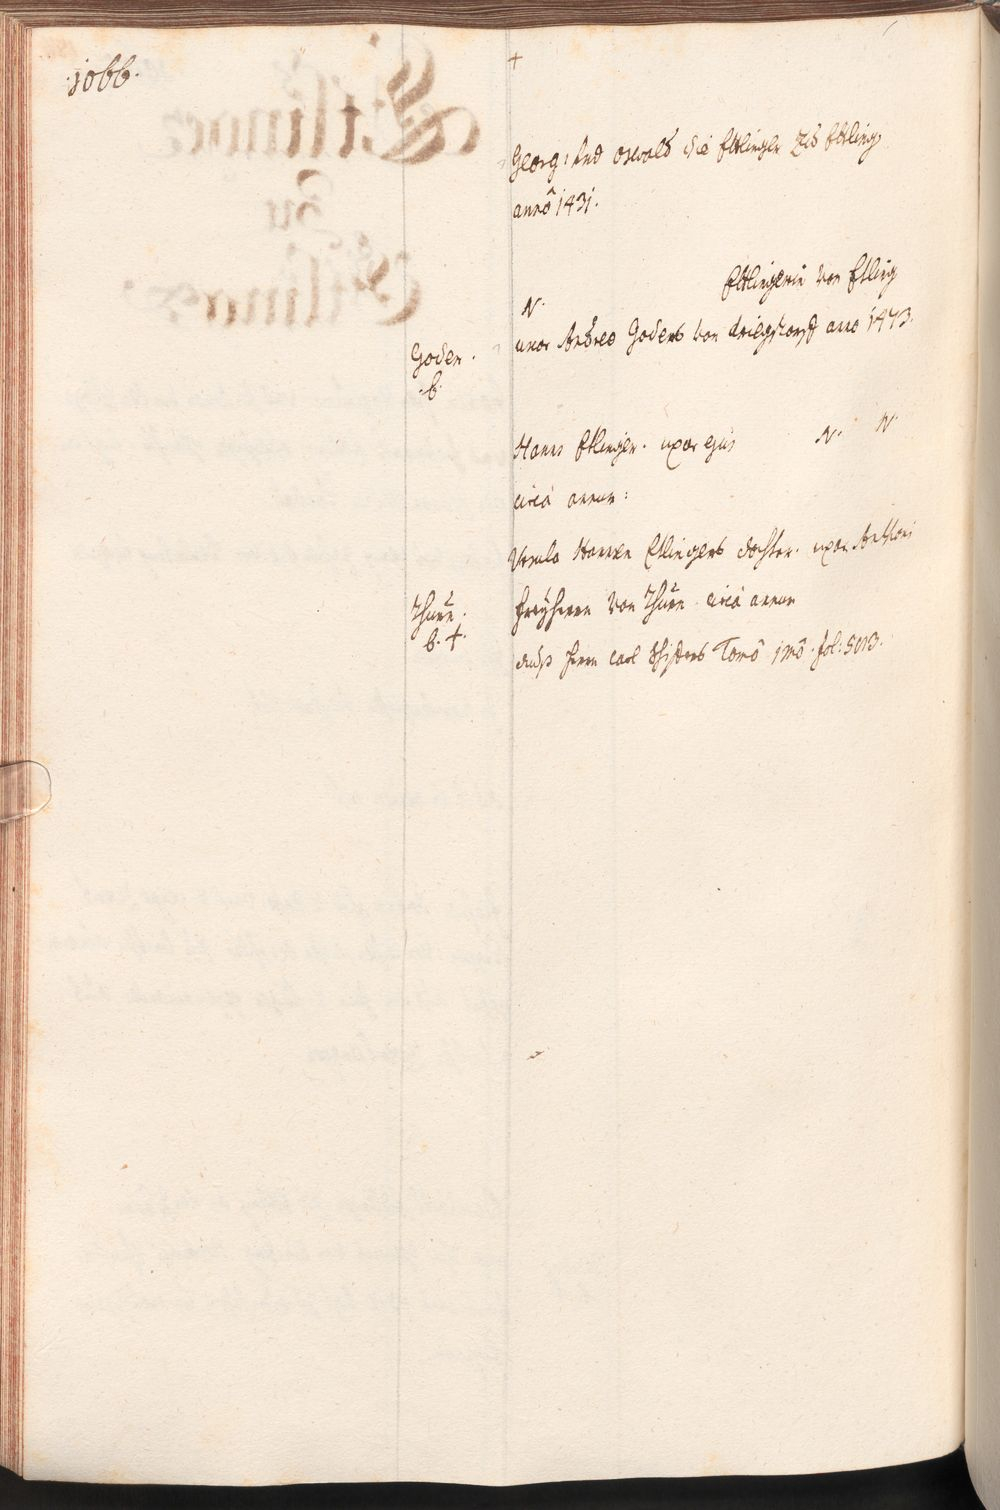 .1066.
+
Georg: und Oswald die Ettlinger zu Ettling
annô 1431.
Ettlingerin von Etling
N.
uxor Andree Goders von Kriegstorff ano 1473.
Goder.
b.
Hanns Etlinger. uxor ejus N. N.
circa annum:
Ursula Hannsen Etlingers dochter. uxor Anthoni
Freÿherrn von Thurn circa annum
Thurn.
b. +.
auß herrn Carl Tomô jmô. fol: 503.